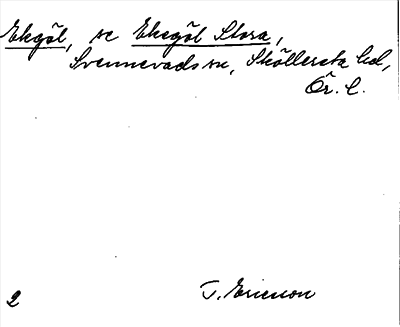 Ekegöl, se Ekegöl Stora,
Svennevads sn, Sköllersta hd,
Ör. l.
2 T. Ericsson